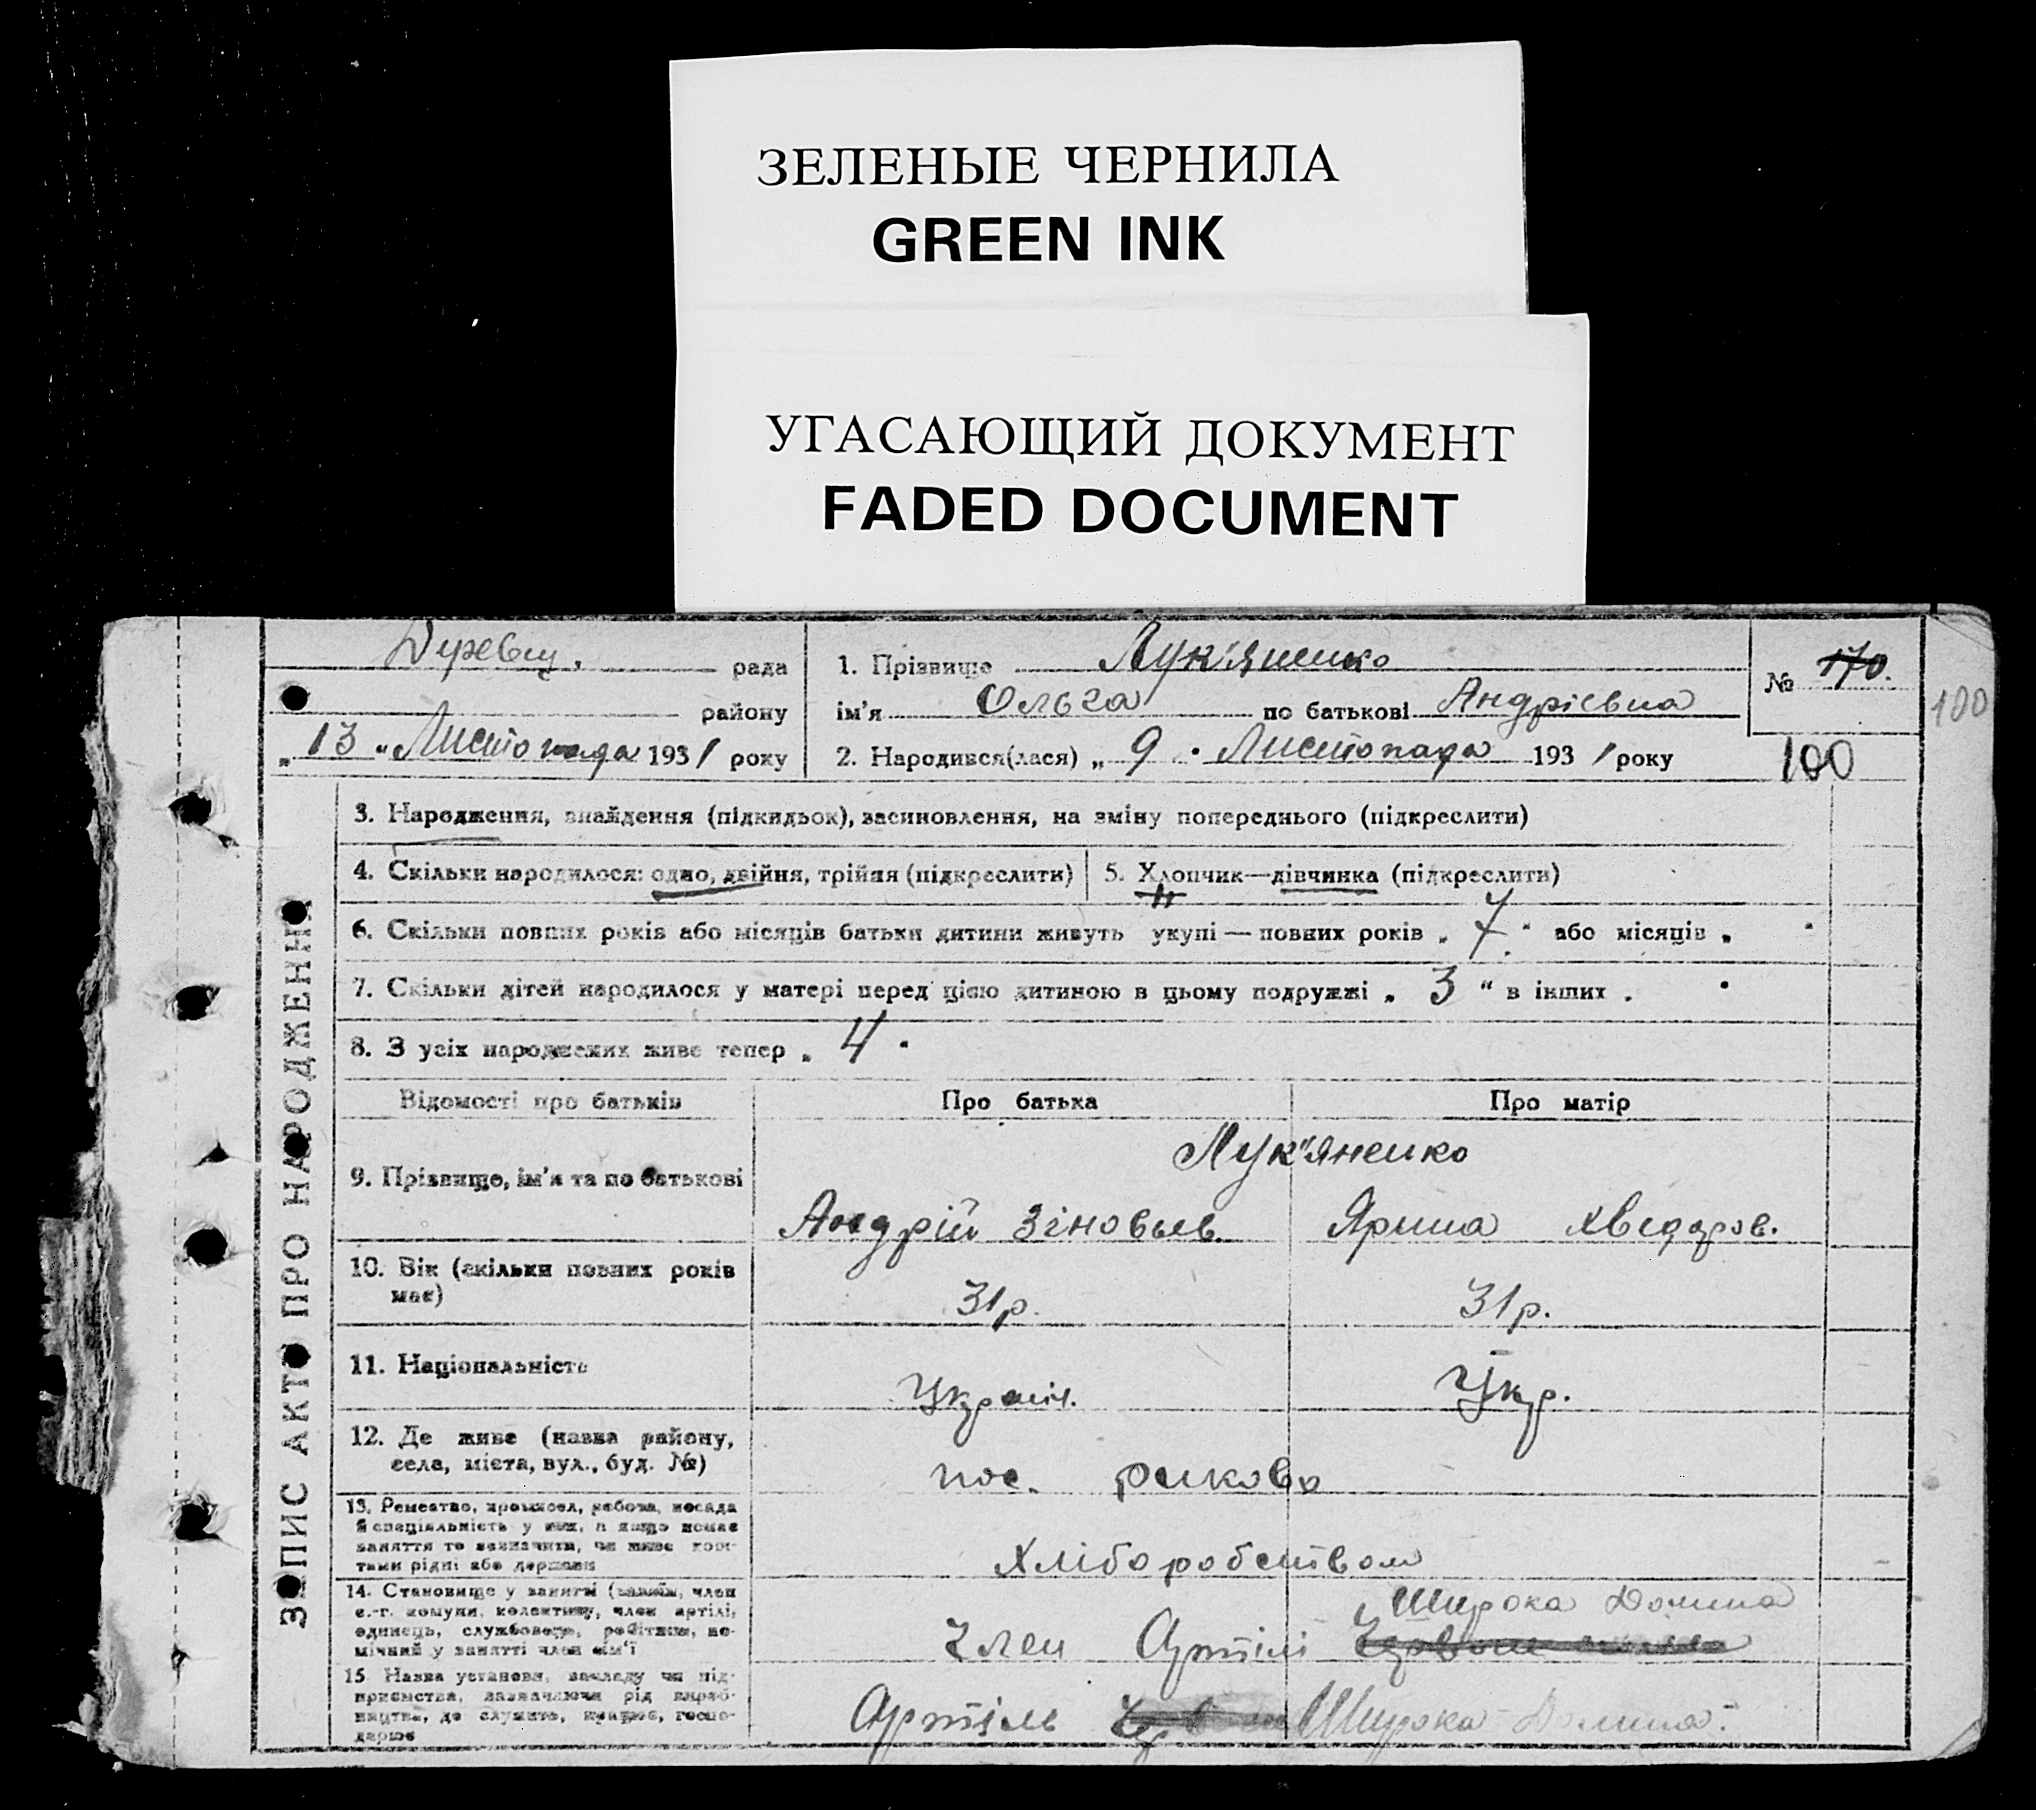 ЗЕЛЕНЫЕ ЧЕРНИЛА
GREEN INK
УГАСАЮЩИЙ ДОКУМЕНТ
FADED DOCUMENT
рада
району
„ 13 " Листопада 1931 року
1. Прізвище Лук'яненко
ім'я Ольга по батькові Андрієвна
2. Народився(лася) „ 9 " Листопада 1931 року
№ 170.
100
100
ЗАПИС АКТУ ПРО НАРОДЖЕННЯ
3. Народження, знайдення (підкидьок), засиновлення, на зміну попереднього (підкреслити)
4. Скільки народилося: одно, двійня, трійня (підкреслити)
5. Хлопчик—дівчинка (підкреслити)
6. Скільки повних років або місяців батьки дитини живуть укупі — повних років „ 7 " або місяців „ "
7. Скільки дітей народилося у матері перед цією дитиною в цьому подружжі „ 3 " в інших „ "
8. З усіх народжених живе тепер „ 4 "
Відомості про батьків Про батька Про матір
9. Прізвище, ім'я та по батькові
Лук'яненко
Андрій Зіновьев. Ярина Хведоров.
10. Вік (скільки повних років має)
31р. 31р.
11. Національність
Україн. Укр.
12. Де живе (назва району,
села, міста, вул., буд. №)
пос.
13. Ремество, промисел, робота, посада
й спеціяльність у них, а якщо немає
заняття то зазначити, чи живе кош-
тами рідні або держави
Хліборобством
14. Становище у занятті (хазяїн, член
с.-г. комуни, колективу, член артілі,
одинець, службовець, робітник, по-
мічний у занятті член сім'ї
Широка Долина
Член Артілі
15. Назва установи, закладу чи під-
приємства, зазначаючи рід вироб-
ництва, де служить, працює, госпо-
дарює
Артіль Широка Долина.